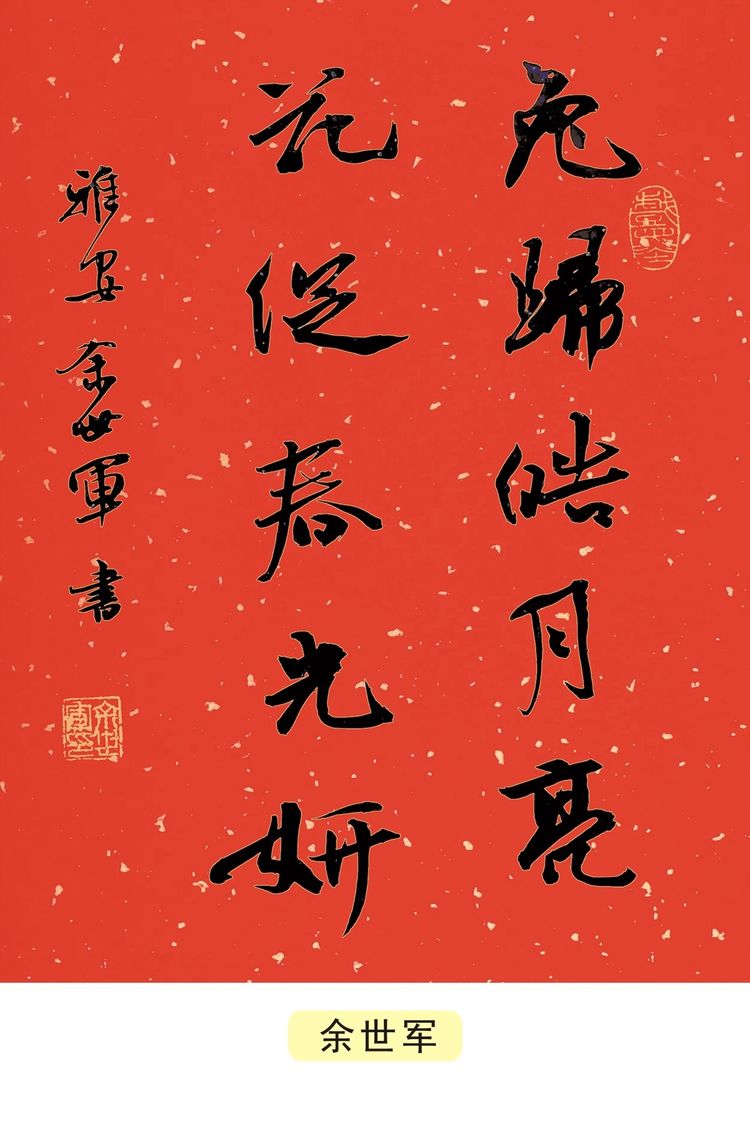 兔歸皓月亮
花促春光妍
雅安 余世軍 書
余世军